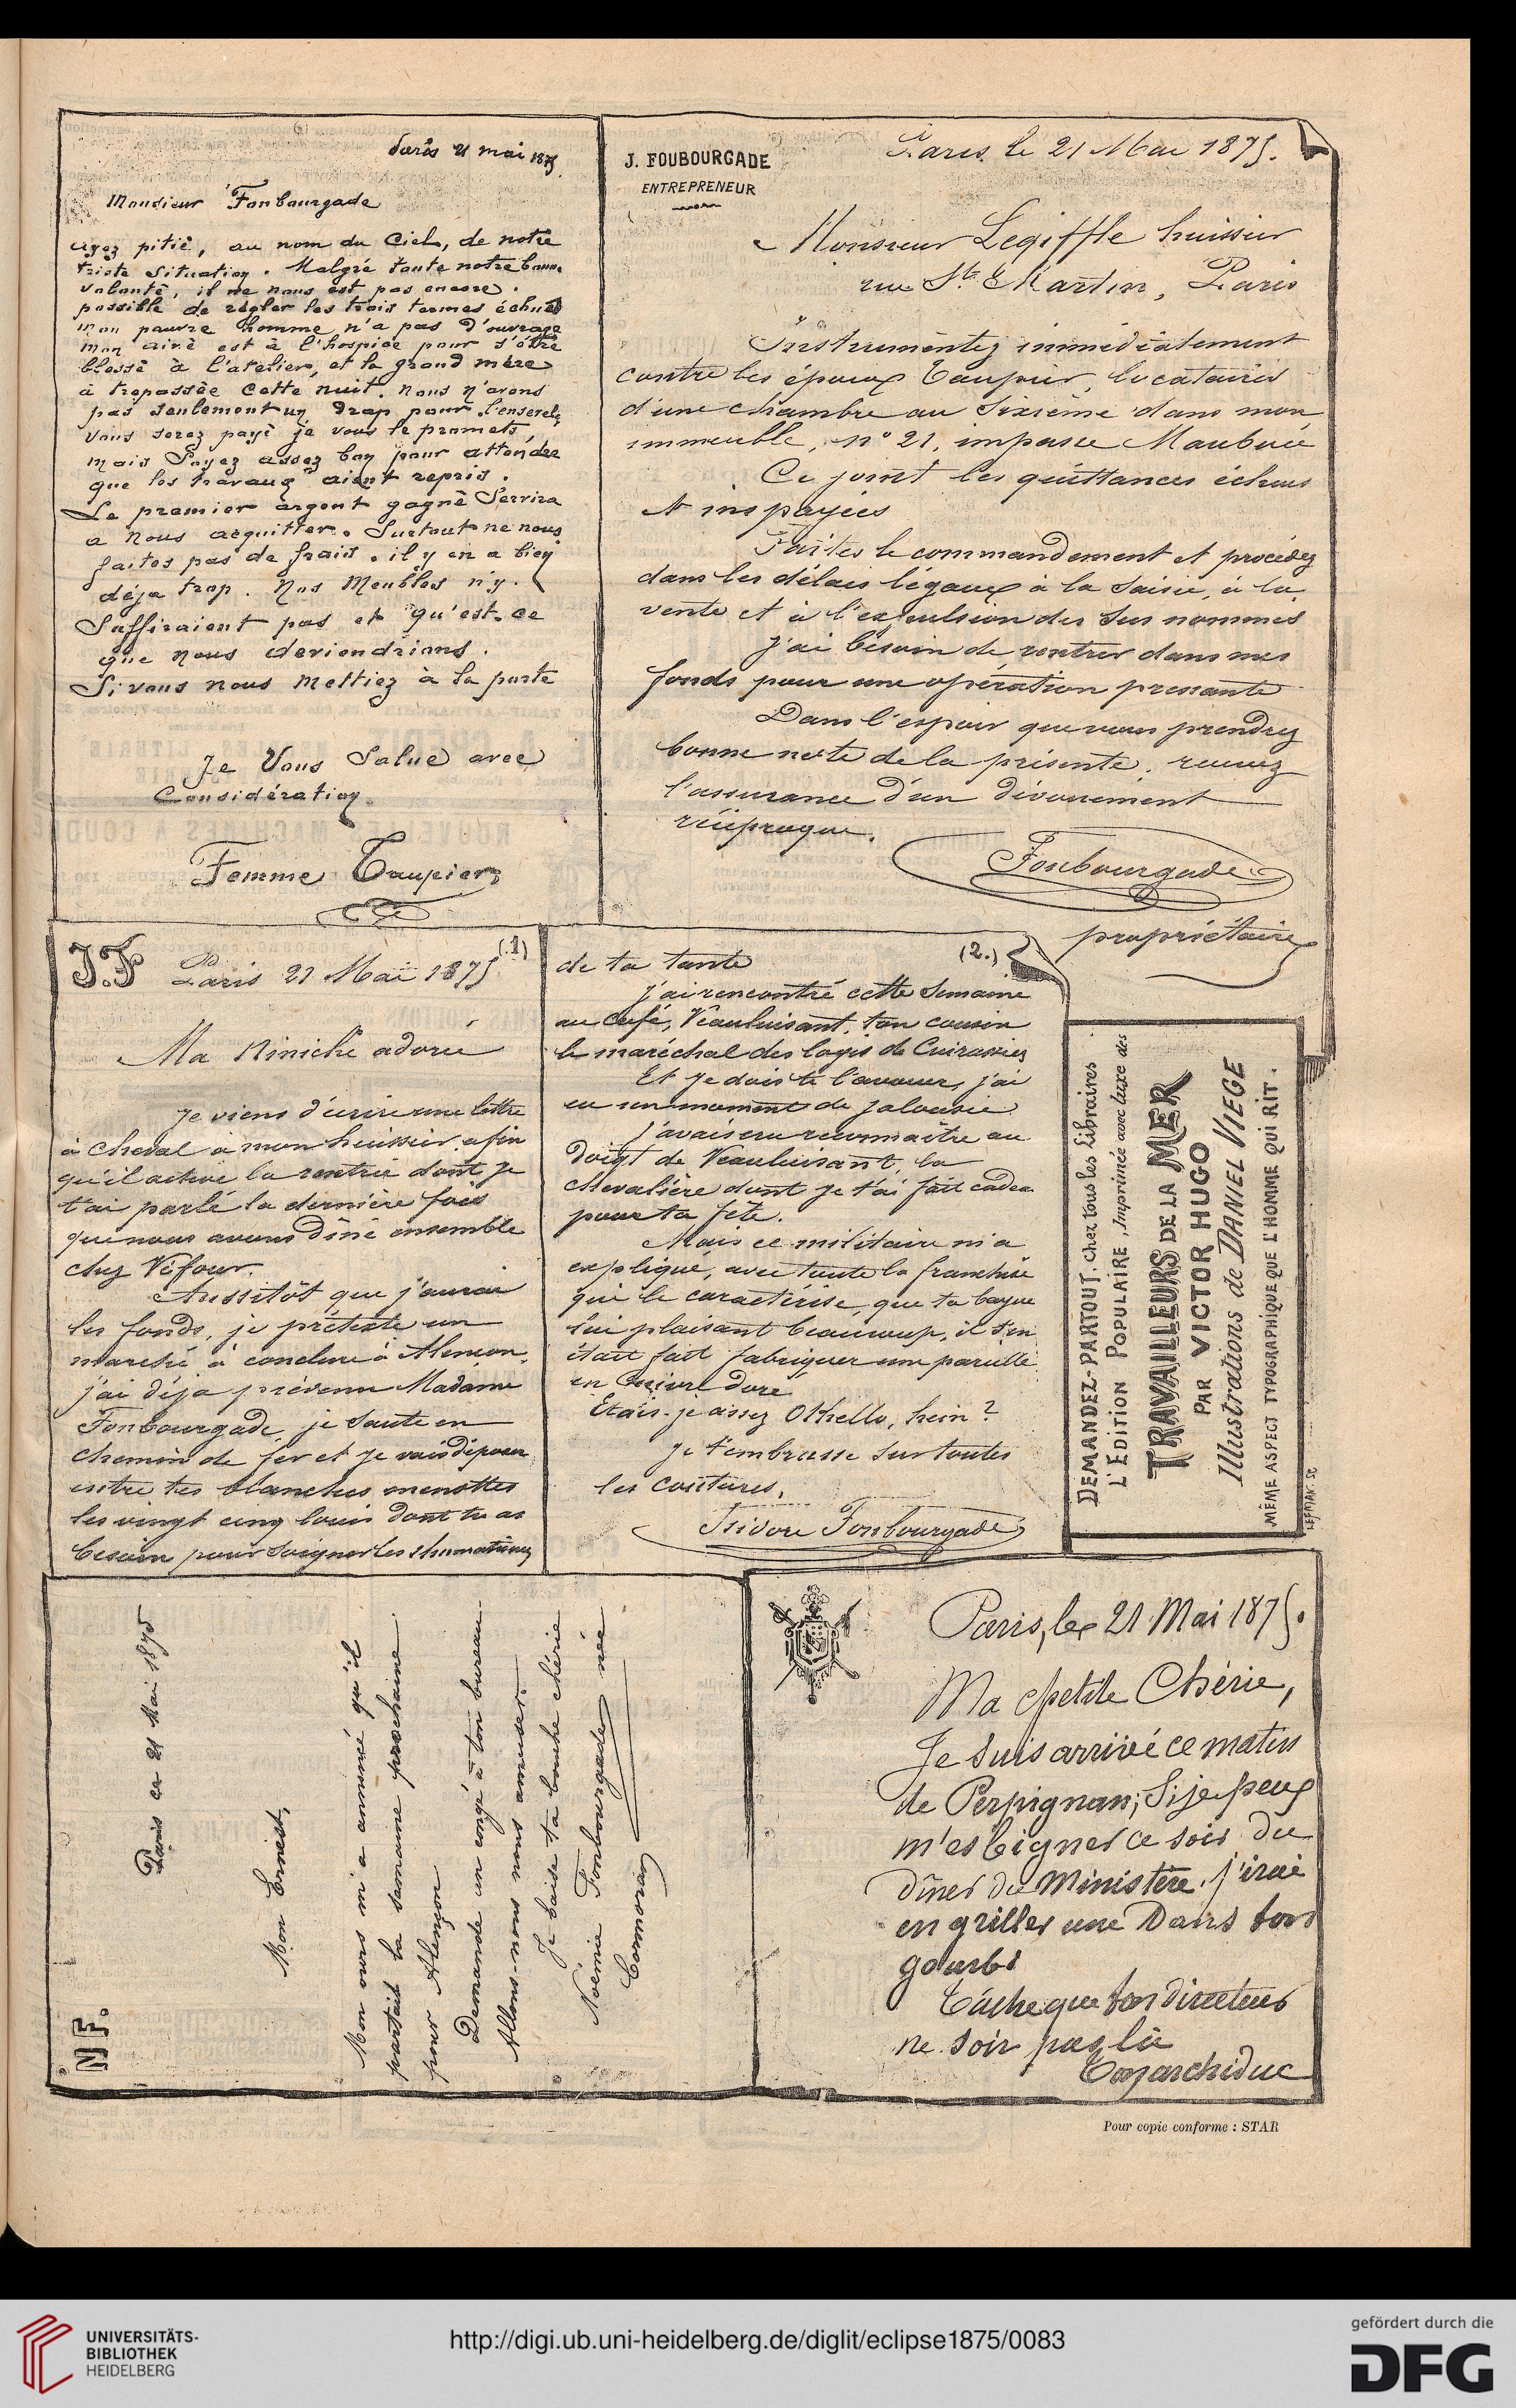 Paris 21 mai 1875.
Monsieur Fonbourgade
ayez pitié, au nom du Ciel, de notre
triste situation. Malgré toute notre bonne
volonté, il ne nous est pas encore
possible de régler les trois termes échus
mon pauvre homme n'a pas d'ouvrage
mon ainé est à l'hospice pour s'être
blessé à l'atelier, et la grand mère
à trepassée cette nuit. nous n'avons
pas seulement un drap pour l'enserelir
vous serez payé je vous le promets
mais soyez assez bon pour attendre
que les travaux aient repris.
Le premier argent gagné servira
a nous acquitter. Surtout ne nous
faites pas de frais. il y en a bien
déja trop. Nos Meubles n'y
Suffiraient pas et qu'est-ce
que nous deviendrions.
Si vous nous mettiez à la porte
Je Vous Salue avec
Considération.
Femme Taupier
J. FOUBOURGADE
ENTREPRENEUR
Paris le 21 Mai 1875.
Monsieur Legiffle huissier
rue St. Martin, Paris
Instrumentez immédiatement
contre les époux Taupier, locataires
d'une chambre au Sixième dans mon
immeuble, n° 21, impasse Maubuée
Ci joint les quittances échues
et impayées
Faites le commandement et procédez
dans les délais légaux à la Saisie, à la
vente et à l'expulsion des Sus nommés
J'ai besoin de rentrer dans mes
fonds pour une opération pressante
Dans l'espoir que vous prendrez
bonne note de la présente, recevez
l'assurance d'un dévouement
réciproque.
Fonbourgade
propriétaire
J.F
(1)
Paris 21 Mai 1875
Ma Niniche adorée
Je viens d'écrire une lettre
à cheval à mon huissier afin
qu'il active la rentrée dont je
t'ai parlé la dernière fois
que nous avons dîné ensemble
chez Véfour.
Aussitôt que j'aurai
les fonds, je prétexte un
marché à conclure à Alençon,
j'ai déja prévenu Madame
Fonbourgade, je saute en
chemin de fer et je vais déposer
entre tes blanches menottes
les vingt cinq louis dont tu as
besoin pour soigner les rhumatismes
(2.)
de ta tante
J'ai rencontré cette Semaine
au Café, Veauluisant, ton cousin
le maréchal des logis de Cuirassiers
Et je dois te l'avouer, j'ai
eu un moment de jalousie
J'avais cru reconnaître au
doigt de Veauluisant, la
chevalière dont je t'ai fait cadeau
pour ta fête.
Mais ce militaire m'a
expliqué, avec toute la franchise
qui le caractérise, que ta bague
lui plaisant beaucoup, il s'en
était fait fabriquer une pareille
en Cuivre doré
Etais-je assez Othello, hein?
Je t'embrasse sur toutes
les coutures,
Isidore Fonbourgade
DEMANDEZ-PARTOUT, chez tous les Libraires
L'EDITION POPULAIRE, Imprimée avec luxe des
TRAVAILLEURS DE LA MER
PAR VICTOR HUGO
Illustrations de DANIEL VIEGE
MÊME ASPECT TYPOGRAPHIQUE QUE L'HOMME QUI RIT.
LEFMAN. SC
N F.
Paris ce 21 Mai 1875
Mon Ernest,
Mon ours m'a annoncé qu'il
partait la semaine prochaine
pour Alençon
Demande un congé à ton bureau.
Allons-nous nous amuser.
Je baise ta bouche chérie
Noémie Fonbourgade née
Cormoran
Paris, le 21 Mai 1875.
Ma petite Chérie,
Je suis arrivé ce matin
de Perpignan; Si je peux
m'esbigner ce soir du
dîner du Ministère, j'irai
en griller une Dans ton
gourbi
Tâche que ton directeur
ne soir pas là
Ton archiduc
Pour copie conforme : STAR
UNIVERSITÄTS-
BIBLIOTHEK
HEIDELBERG
http://digi.ub.uni-heidelberg.de/diglit/eclipse1875/0083
gefördert durch die
DFG